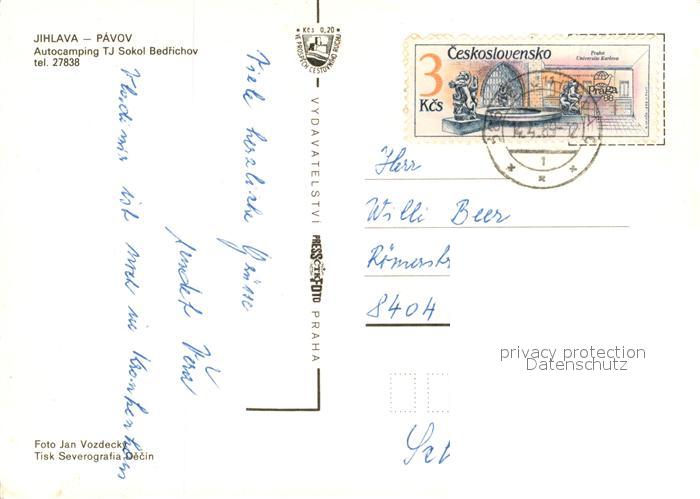 JIHLAVA — PÁVOV
Autocamping TJ Sokol Bedřichov
tel. 27838
Kčs 0,20
VE PROSPĚCH CESTOVNÍHO RUCHU
Viele herzliche Grüsse
sendet Věra
Vladimir ist noch im Krankenhaus
VYDAVATELSTVÍ PRESSFOTO PRAHA
ČTK
Československo
3
Kčs
Praha
Universita Karlova
PRAGA
88
14.5.89-12
1
Herr
Willi Beer
Römerstr
8404
privacy protection
Datenschutz
Foto Jan Vozdecký
Tisk Severografia Děčín